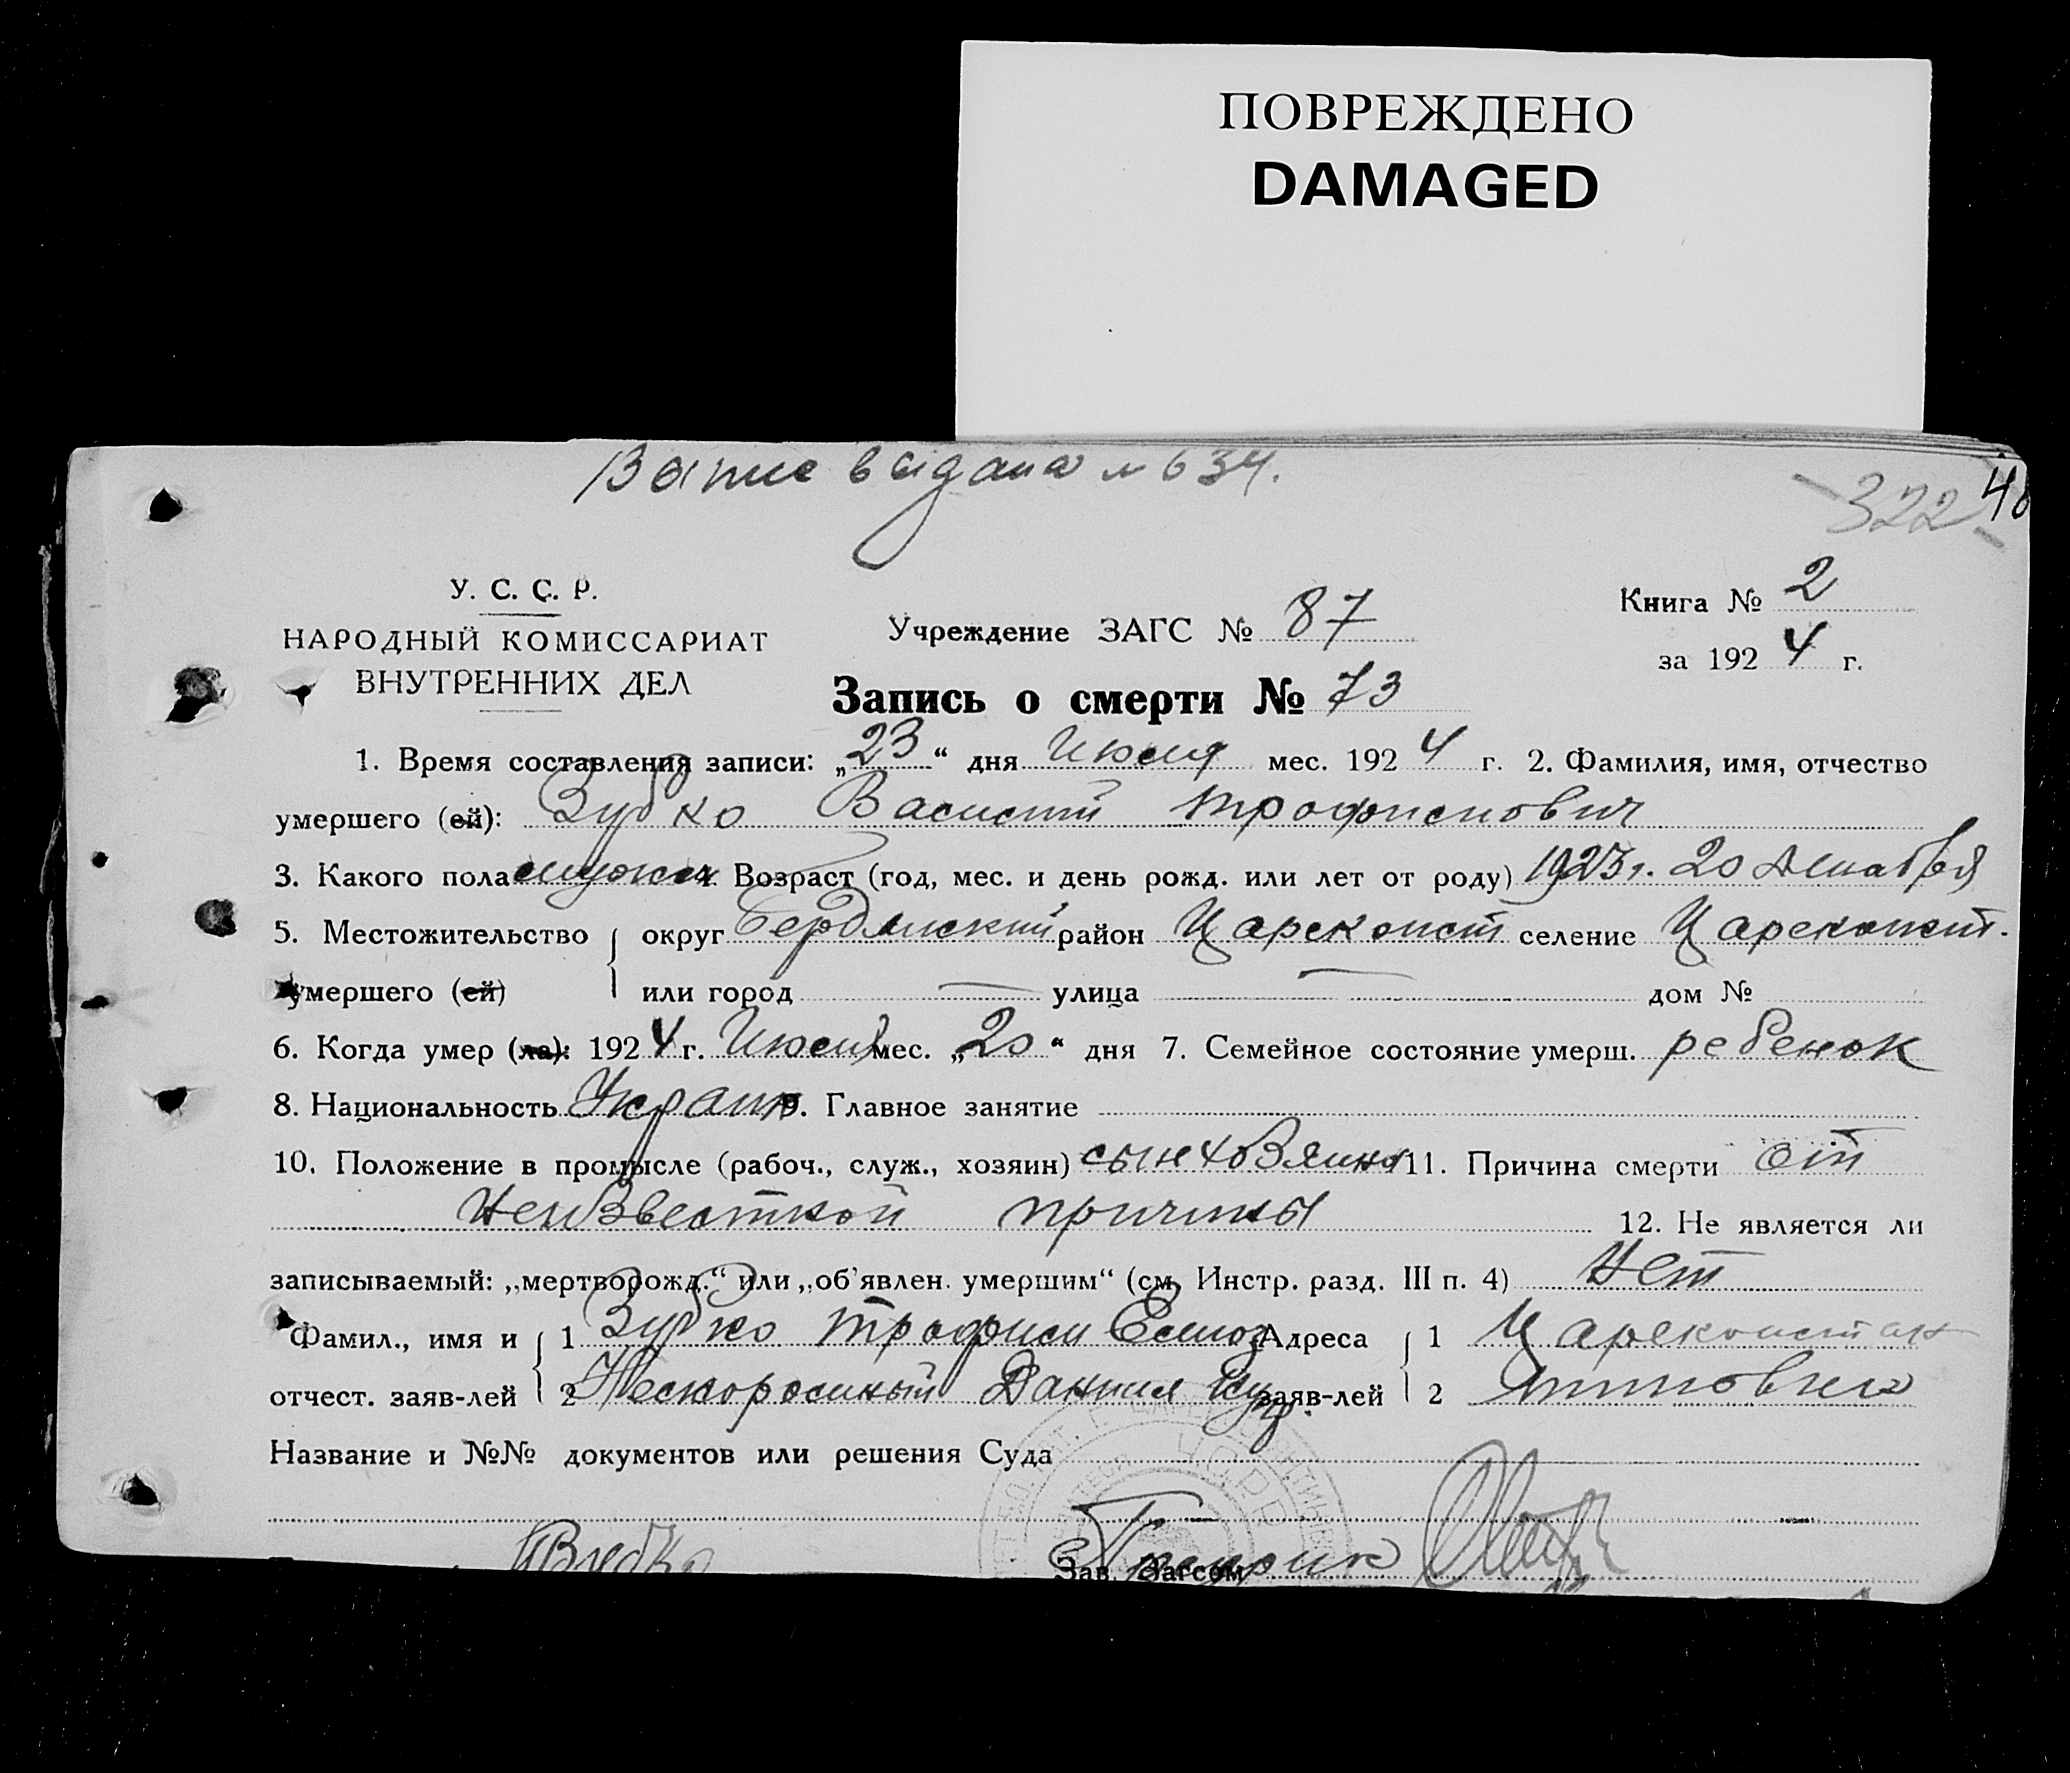 ПОВРЕЖДЕНО
DAMAGED
выдана № 634.
322
У. С. С. Р.
НАРОДНЫЙ КОМИССАРИАТ
ВНУТРЕННИХ ДЕЛ
Учреждение ЗАГС № 87
Книга № 2
за 1924 г.
Запись о смерти № 73
1. Время составления записи: „23“ дня Июля мес. 1924 г. 2. Фамилия, имя, отчество
умершего (ей): Зубко Василий Трофимович
3. Какого пола мужск 4. Возраст (год, мес. и день рожд. или лет от роду) 1923 г. 20 Декабря
5. Местожительство округ Бердянский район Цареконст селение Цареконст.
умершего (ей) или город — улица — дом №
6. Когда умер (ла): 1924 г. Июля мес. „20“ дня 7. Семейное состояние умерш. ребенок
8. Национальность Украин 9. Главное занятие
10. Положение в промысле (рабоч., служ., хозяин) сын хозяина 11. Причина смерти от
неизвестной причины 12. Не является ли
записываемый: „мертворожд.“ или „об'явлен. умершим“ (см. Инстр. разд. III п. 4) Нет
Фамил., имя и 1 Зубко Трофим Адреса 1 Цареконстан
отчест. заяв-лей 2 Даниил заяв-лей 2 тиновка
Название и №№ документов или решения Суда
Зав. Загсом